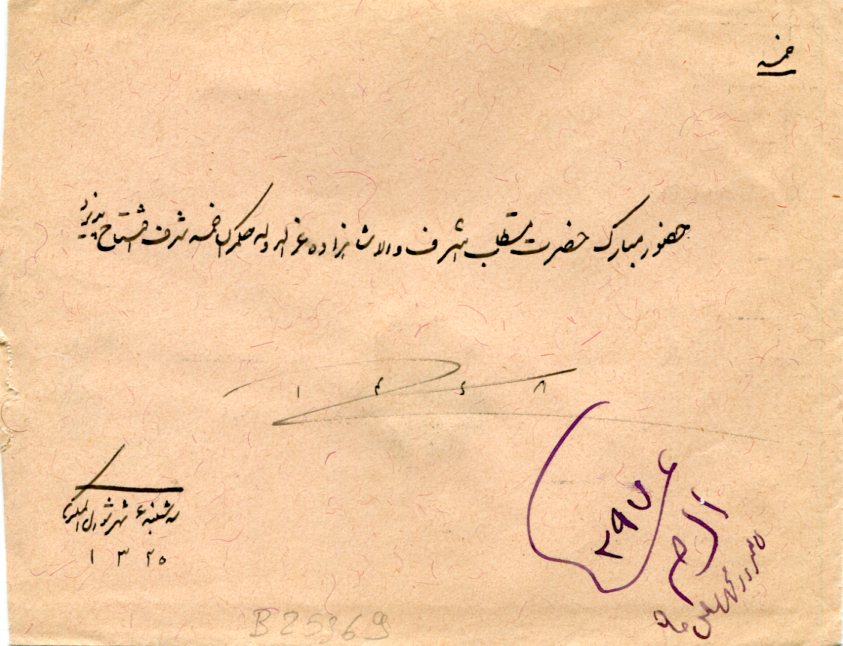 خمسه
حضور مبارک حضرت مستطاب اشرف والا شاهزاده عز الدوله حکمران خمسه شرف افتتاح پذیرد
۱ ۳ ۴ ۸
سه شنبه ۶ شهر شوال المکرم
۱ ۳ ۲۰
۲۹۷
B25369